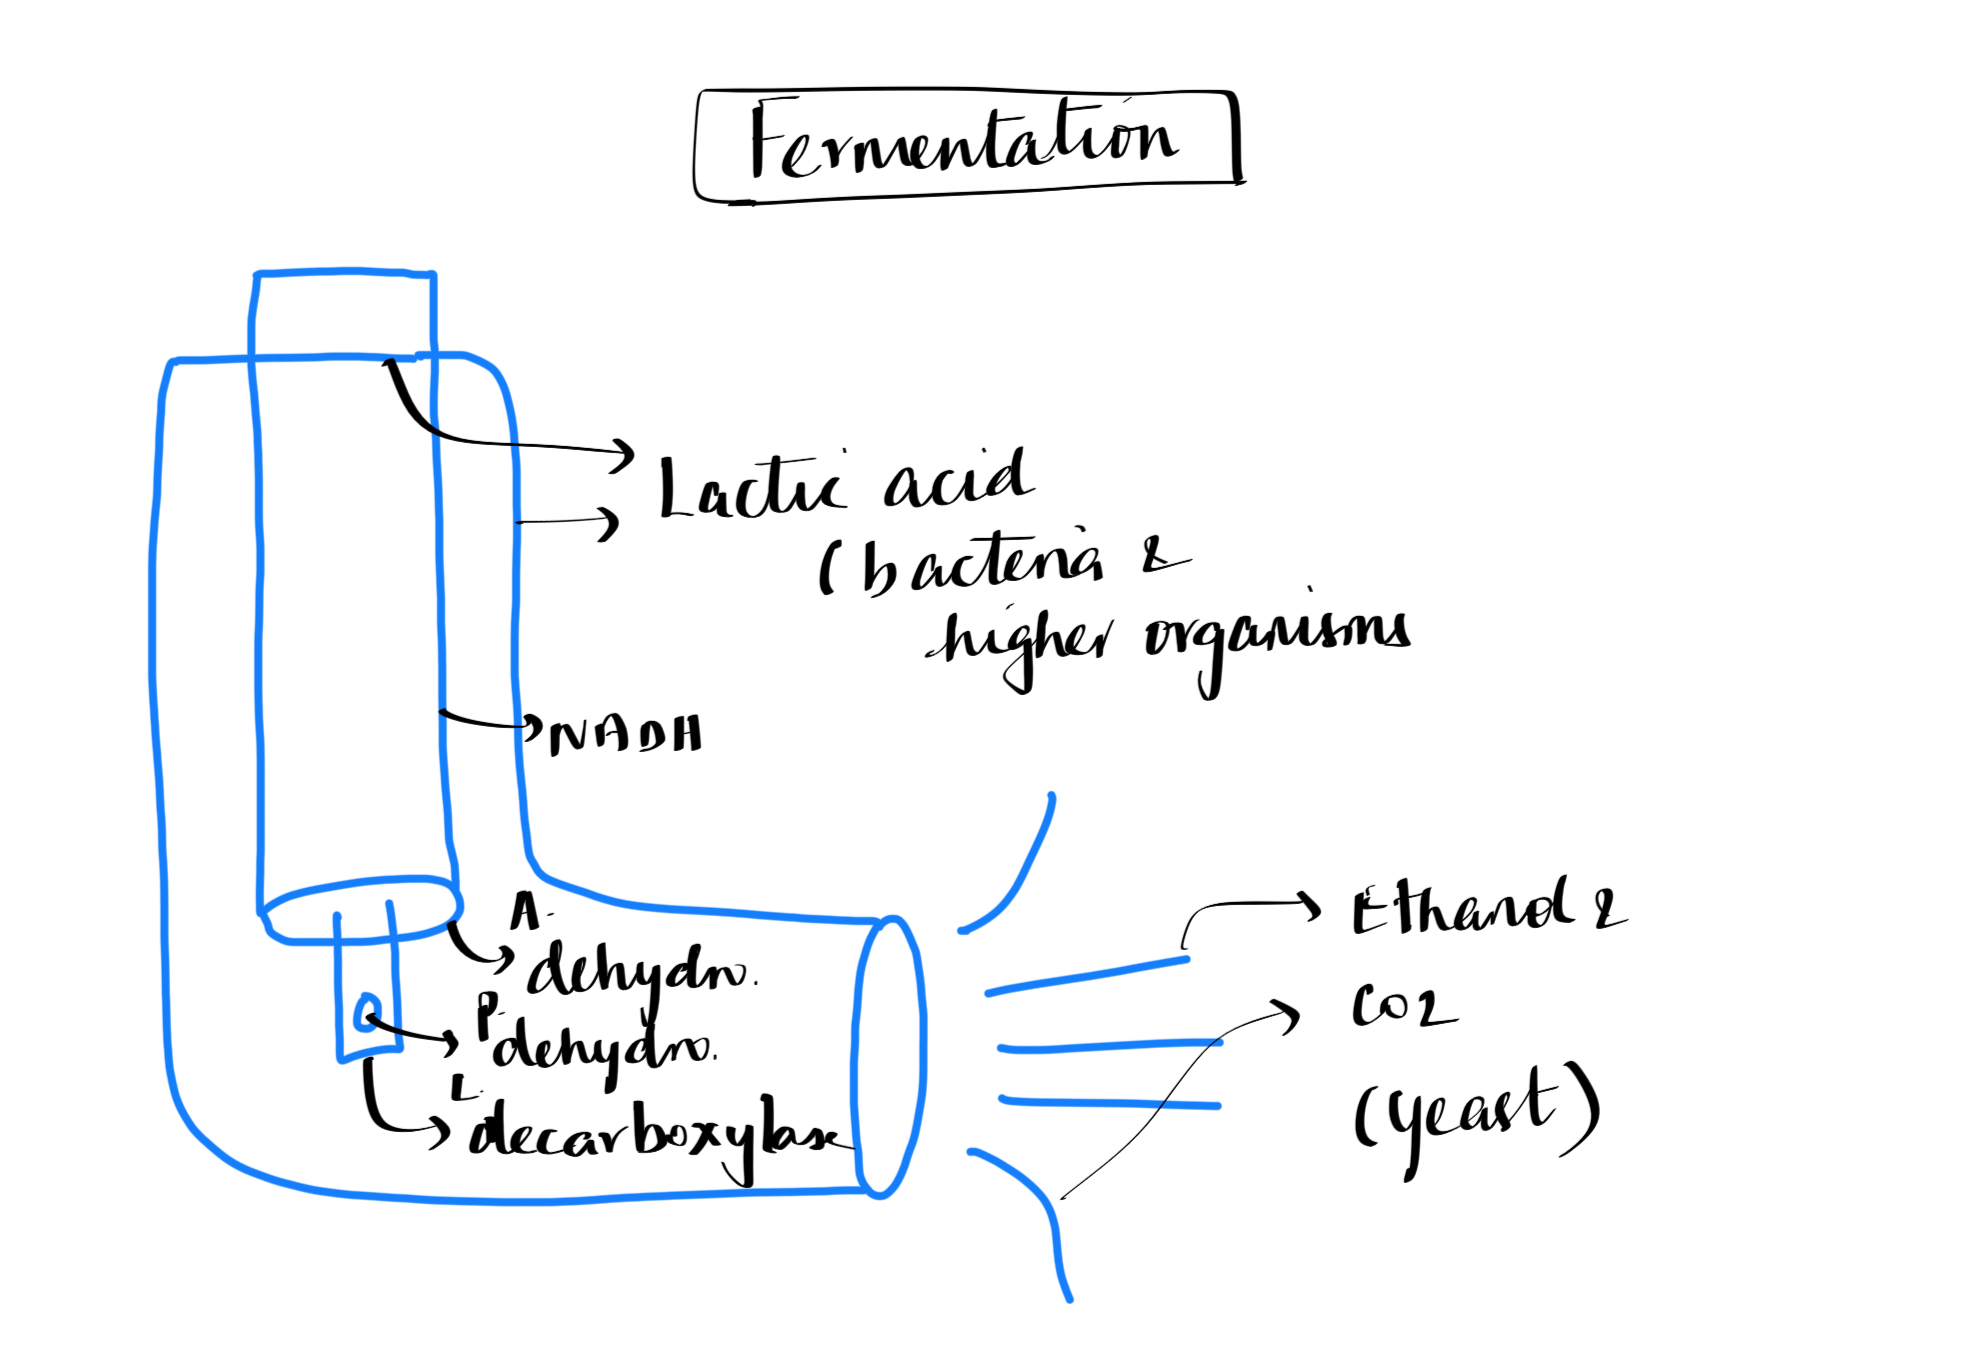 Fermentation
Lactic acid
(bacteria &
higher organisms
NADH
A.
dehydro.
P.
dehydro.
L.
decarboxylase
Ethanol &
CO2
(yeast)